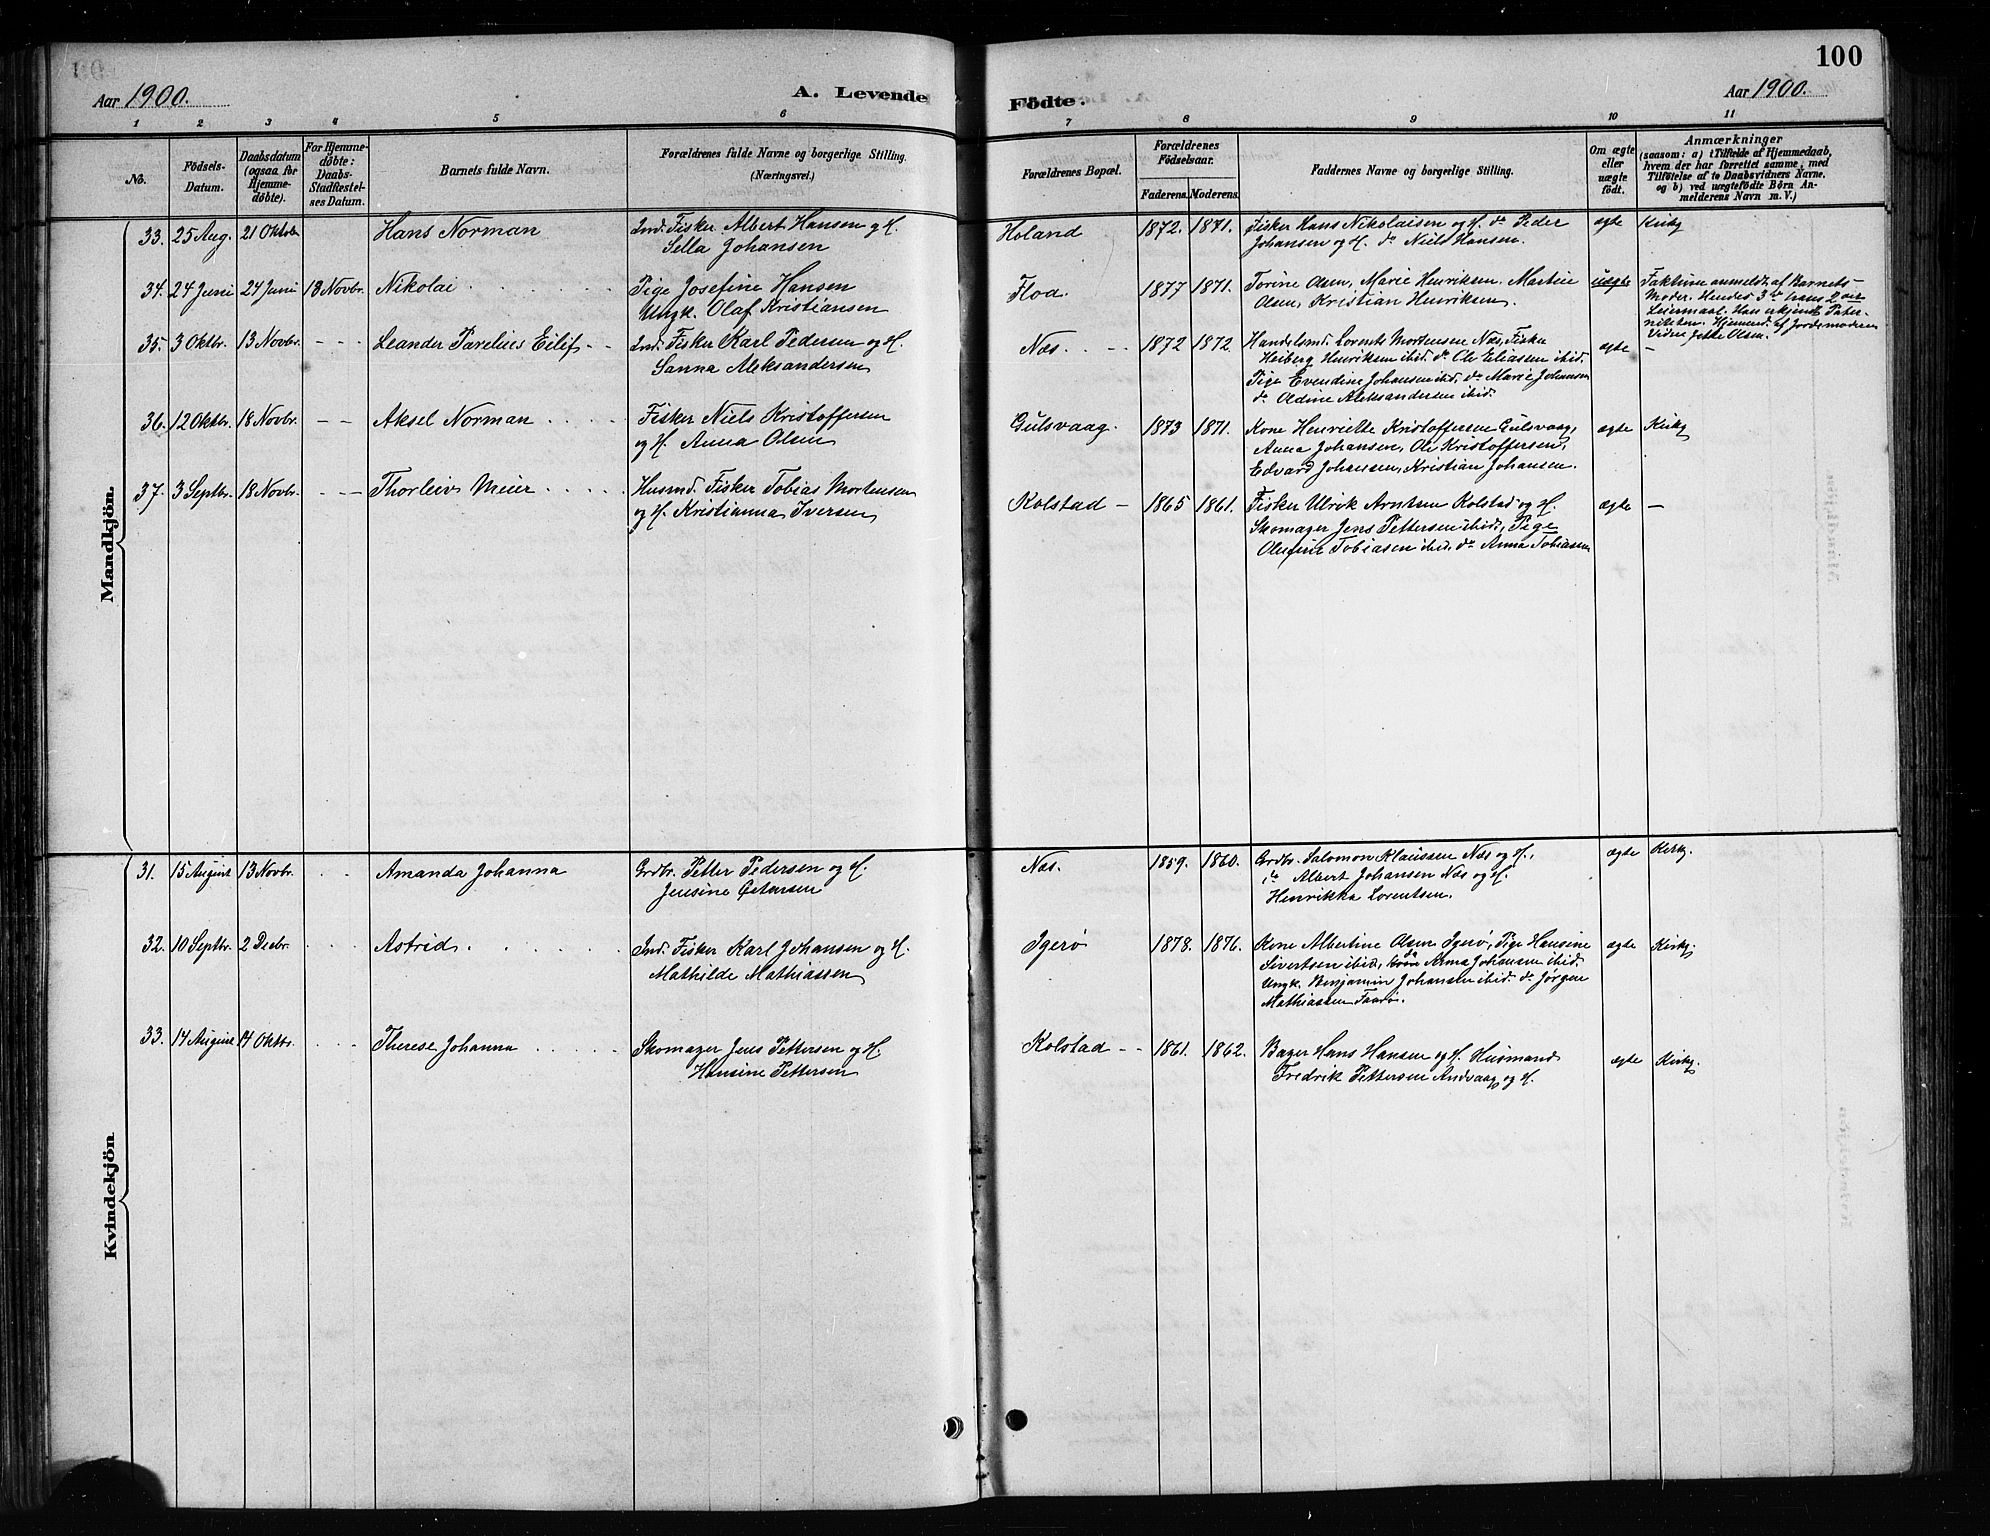 100
Aar 1900.
A. Levende Födte.
Aar 1900.
1 2 3 4 5 6 7 8 9 10 11
No.
Födsels-Datum.
Daabsdatum (ogsaa for Hjemme-døbte).
For Hjemme-døbte: Daabs-Stadfæstel-ses Datum.
Barnets fulde Navn.
Forældrenes fulde Navne og borgerlige Stilling.
(Næringsvei.)
Forældrenes Bopæl.
Forældrenes Födselsaar.
Faderens. Moderens.
Faddernes Navne og borgerlige Stilling.
Om ægte eller uægte födt.
Anmærkninger
(saasom: a) i Tilfælde af Hjemmedaab, hvem der har forrettet samme, med Tilföielse af to Daabsvidners Navne, og b) ved uægtefödte Börn An-melderens Navn m. V.)
Mandkjön.
33. 25 Aug. 21 Oktbr Hans Norman Ind. Fisker Albert Hansen og H. Holand 1872. 1871. Fisker Hans Nikolaisen og H. do Peder ægte Kirky
Sella Johansen Johansen og H. do Niels Hansen.
34. 24 Juni 24 Juni 18 Novbr. Nikolai Pige Josefine Hansen Floa. 1877 1871. Torine Olsen, Marie Henriksen, Martin uægte Faktum anmeldt af Barnets
Ungk. Olaf Kristiansen Olsen, Kristian Henriksen. Moder. Hendes 3die hans 2det
Leiermaal. Han erkjent Pater-
niteten. Hjemmed. af Jordemoderen
Olsen.
35. 3 Oktbr. 13 Novbr. - - - Leander Parelius Eilif - - Ind. Fisker Karl Pedersen og H. Næs. 1872 1872. Handelsmd. Lorents Mortensen Næs, Fisker ægte -
Sanna Aleksandersen Heiberg Henriksen ibid. do Ole Eliasen ibid.
Pige Evendine Johansen ibid. do Marie Johansen
do Oldine Aleksandersen ibid.
36. 12 Oktbr. 18 Novbr. - - Aksel Norman Fisker Niels Kristoffersen Gulsvaag. 1873 1871. Kone Henriette Kristoffersen Gulsvaag, ægte Kirky
og H. Anna Olsen Anna Johansen, Ole Kristoffersen,
Edvard Johansen, Kristian Johansen.
37. 3 Septbr. 18 Novbr. - - - Thorleiv Meier Husmd. Fisker Tobias Mortensen Kolstad - 1865 1861. Fisker Ulrik Arntsen Kolstad og H. ægte -
og H. Kristianna Iversen Skomager Jens Pettersen ibid., Pige
Olufine Tobiasen ibid. do Anna Tobiassen
Kvindekjön
31. 15 August 13 Novbr. Amanda Johanna Grdbr. Petter Pedersen og H. Næs. 1859. 1860. Grdbr. Salomon Klaussen Næs og H., ægte Kirky.
Jensine do Albert Johansen Næs og H.
Henrikka Lorentsen.
32. 10 Septbr. 2 Decbr. Astrid Ind. Fisker Karl Johansen og H. Igerø 1878. 1876. Kone Albertine Olsen Igerø, Pige Hansine ægte Kirky.
Mathilde Mathiassen Sivertsen ibid, do Anna Johansen ibid.
Ungk. Benjamin Johansen ibid. do Jørgen
Mathiassen
33. 14 August 14 Oktbr. Therese Johanna Skomager Jens Pettersen og H. Kolstad - - 1861. 1862. Bager Hans Hansen og H. Husmand ægte Kirky.
Hansine Pettersen Fredrik Pettersen Andvaag og H.